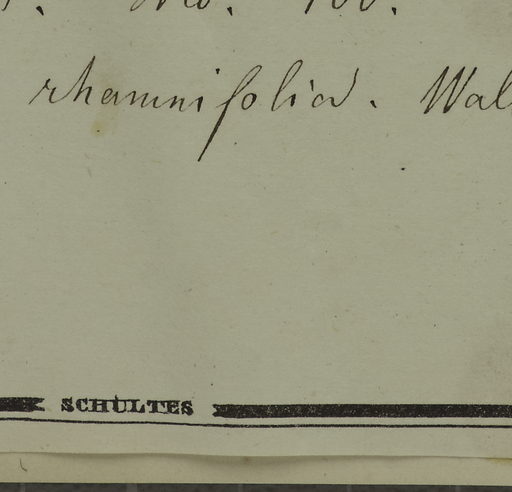 rhamnifolia. Wal
SCHULTES